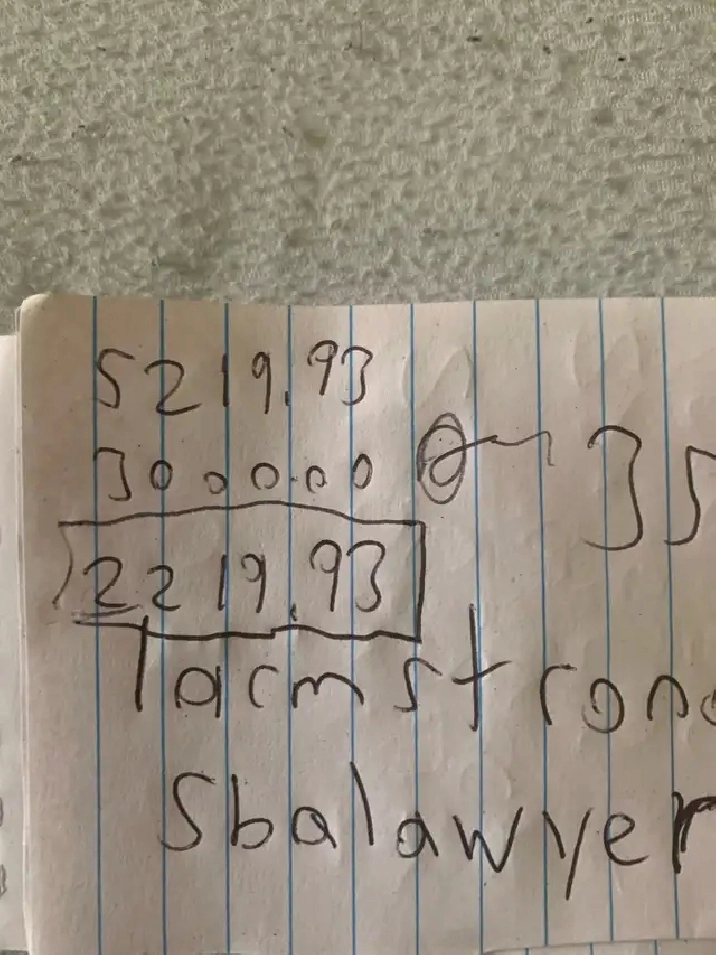 5219.93
3000.00
35
2219.93
larmstrong
Sbalawyer